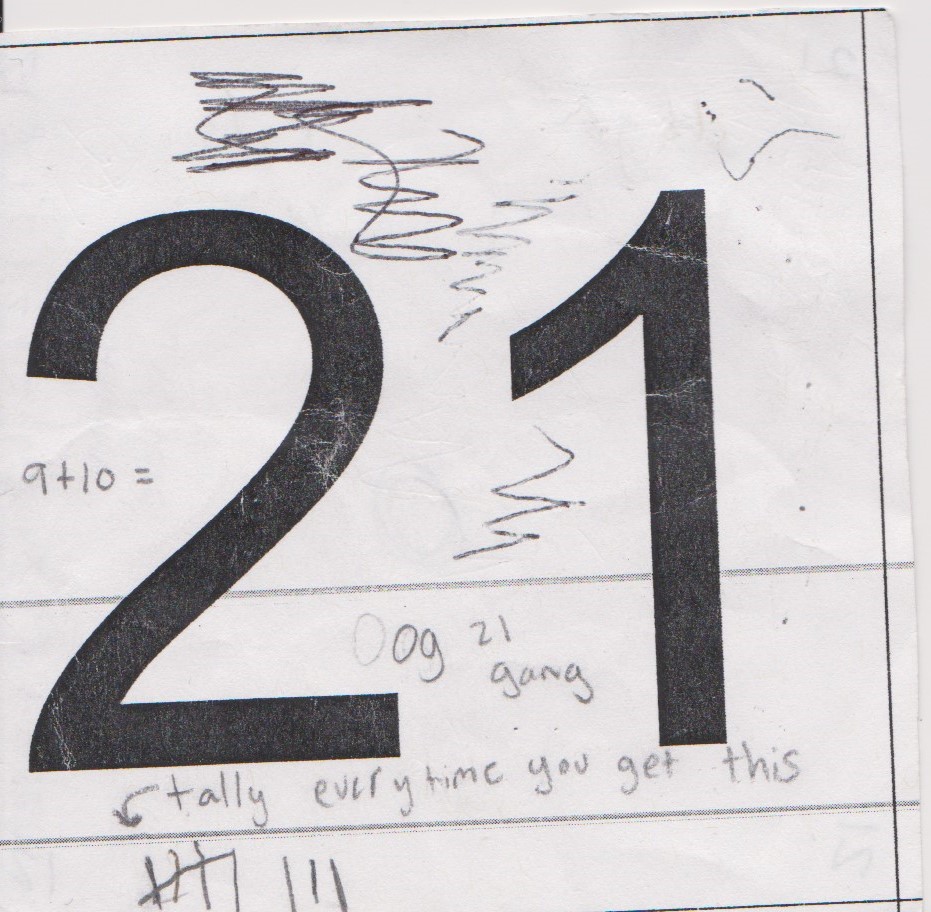 21
9+10 =
Oog 21
gang
tally everytime you get this